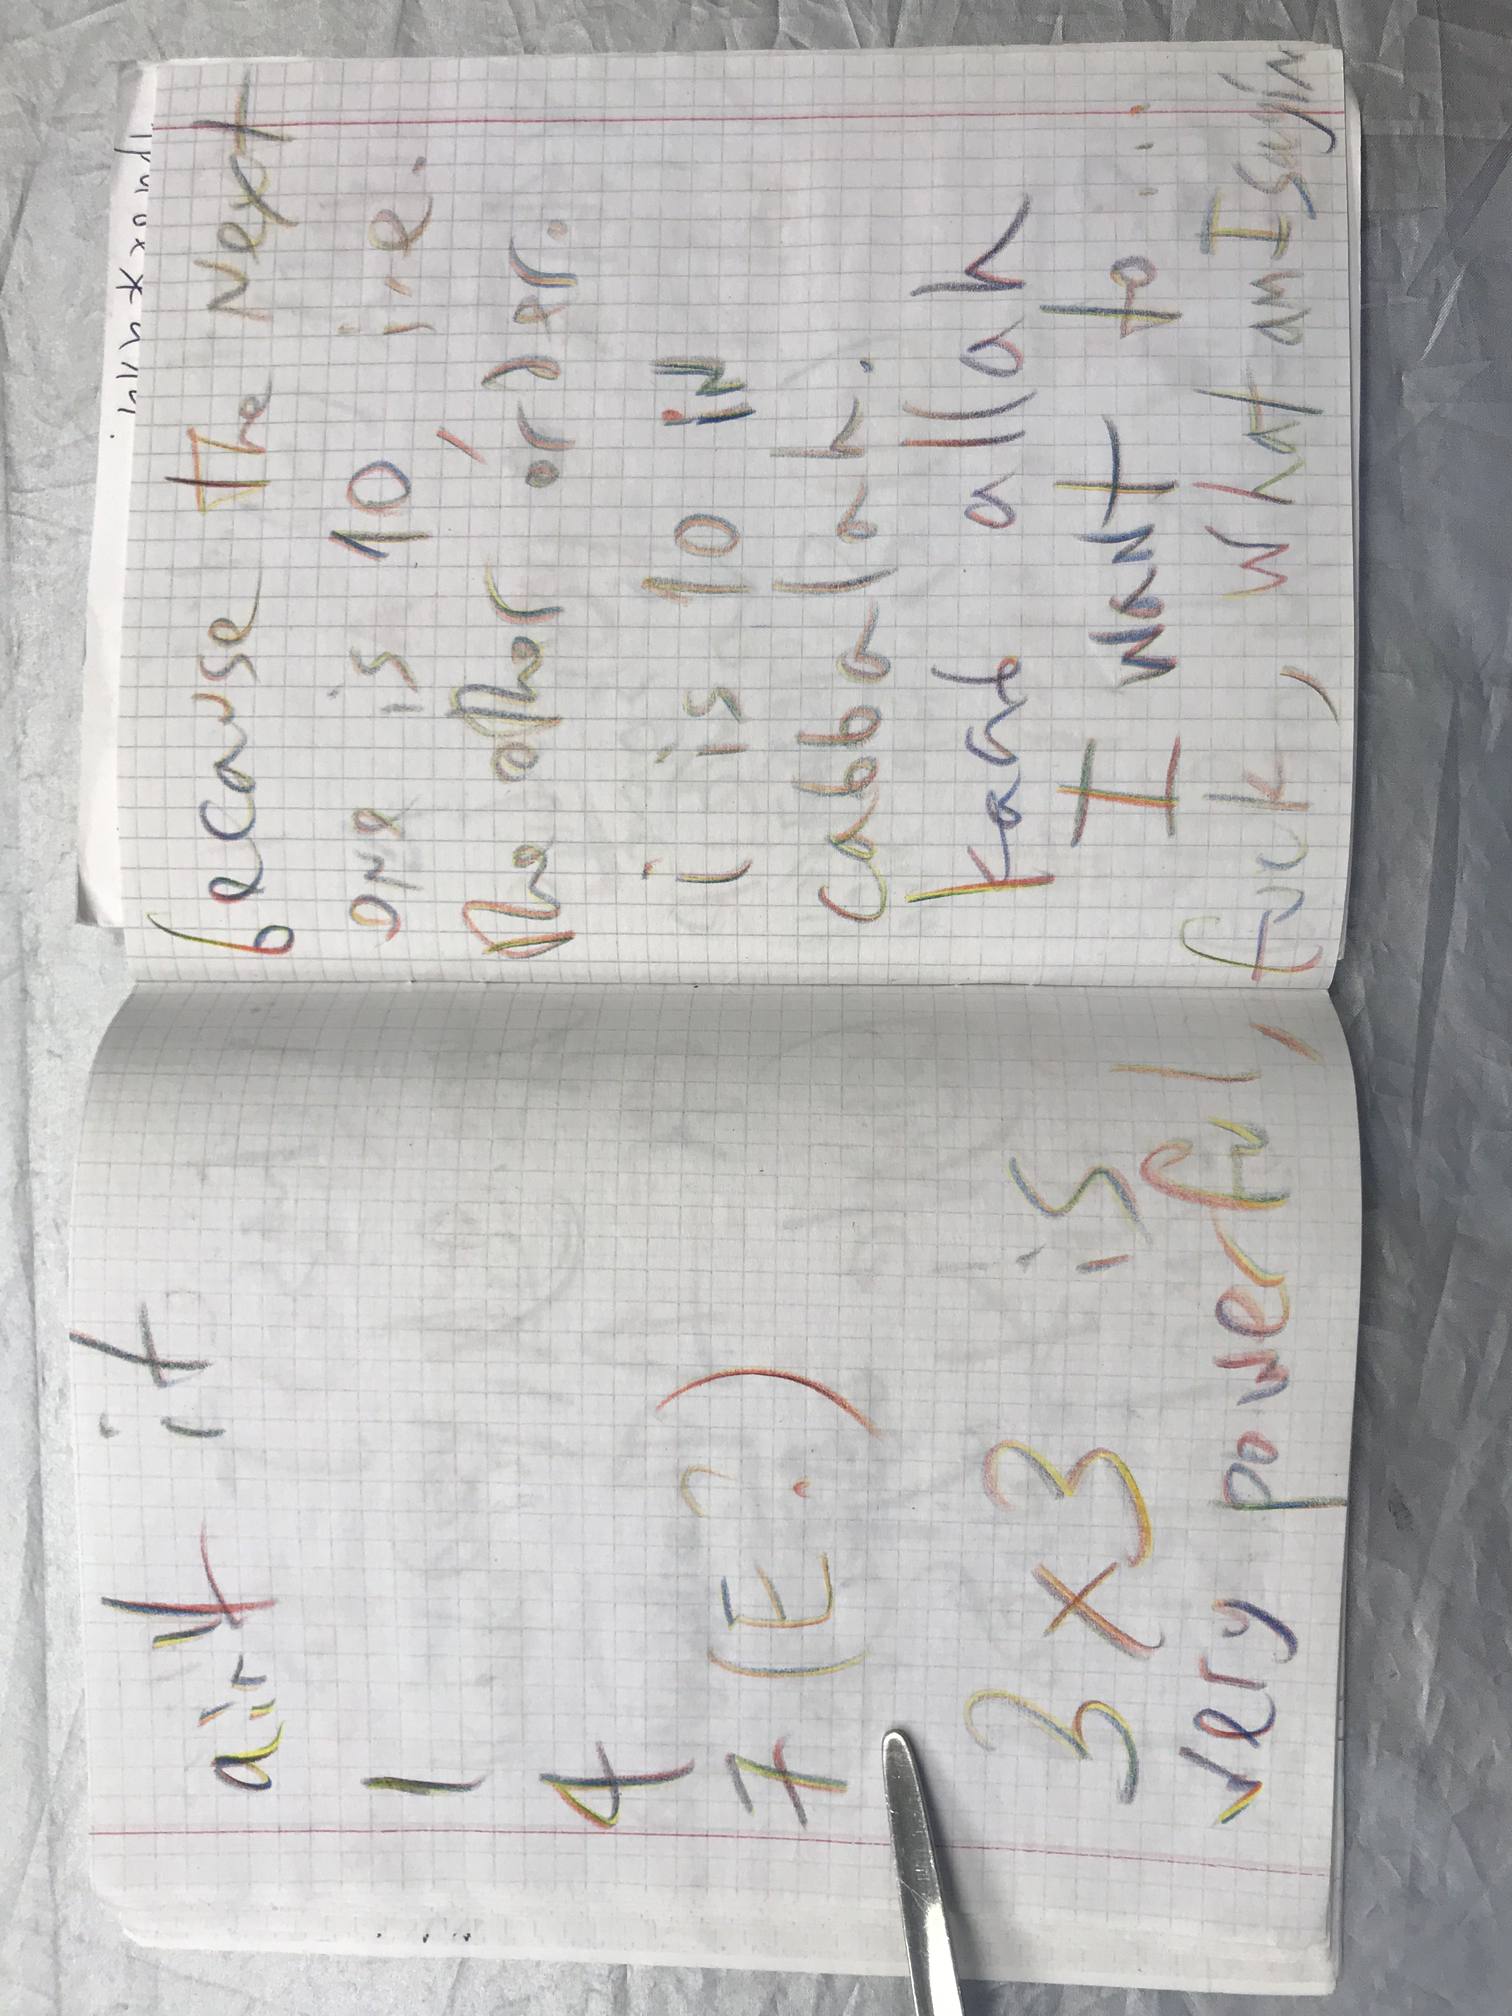 air it
1
4
7 (E?)
3x3 is
very powerful,
because the next
one is 10, i.e.
the other order.
i is 10 in
cabbalah.
kaak allah
I want to..
fuck, what am I sayin